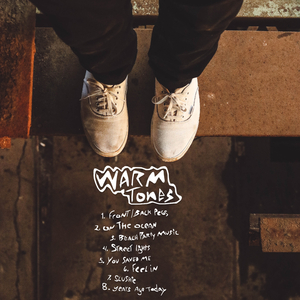 WARM
TONES
1. FRONT/BACK
2. ON THE OCEAN
3. BEACH PARTY MUSIC
4. STREET LIGHTS
5. YOU SAVED ME
6. FEEL IN
7. SLUSHIE
8. YEARS AGO TODAY